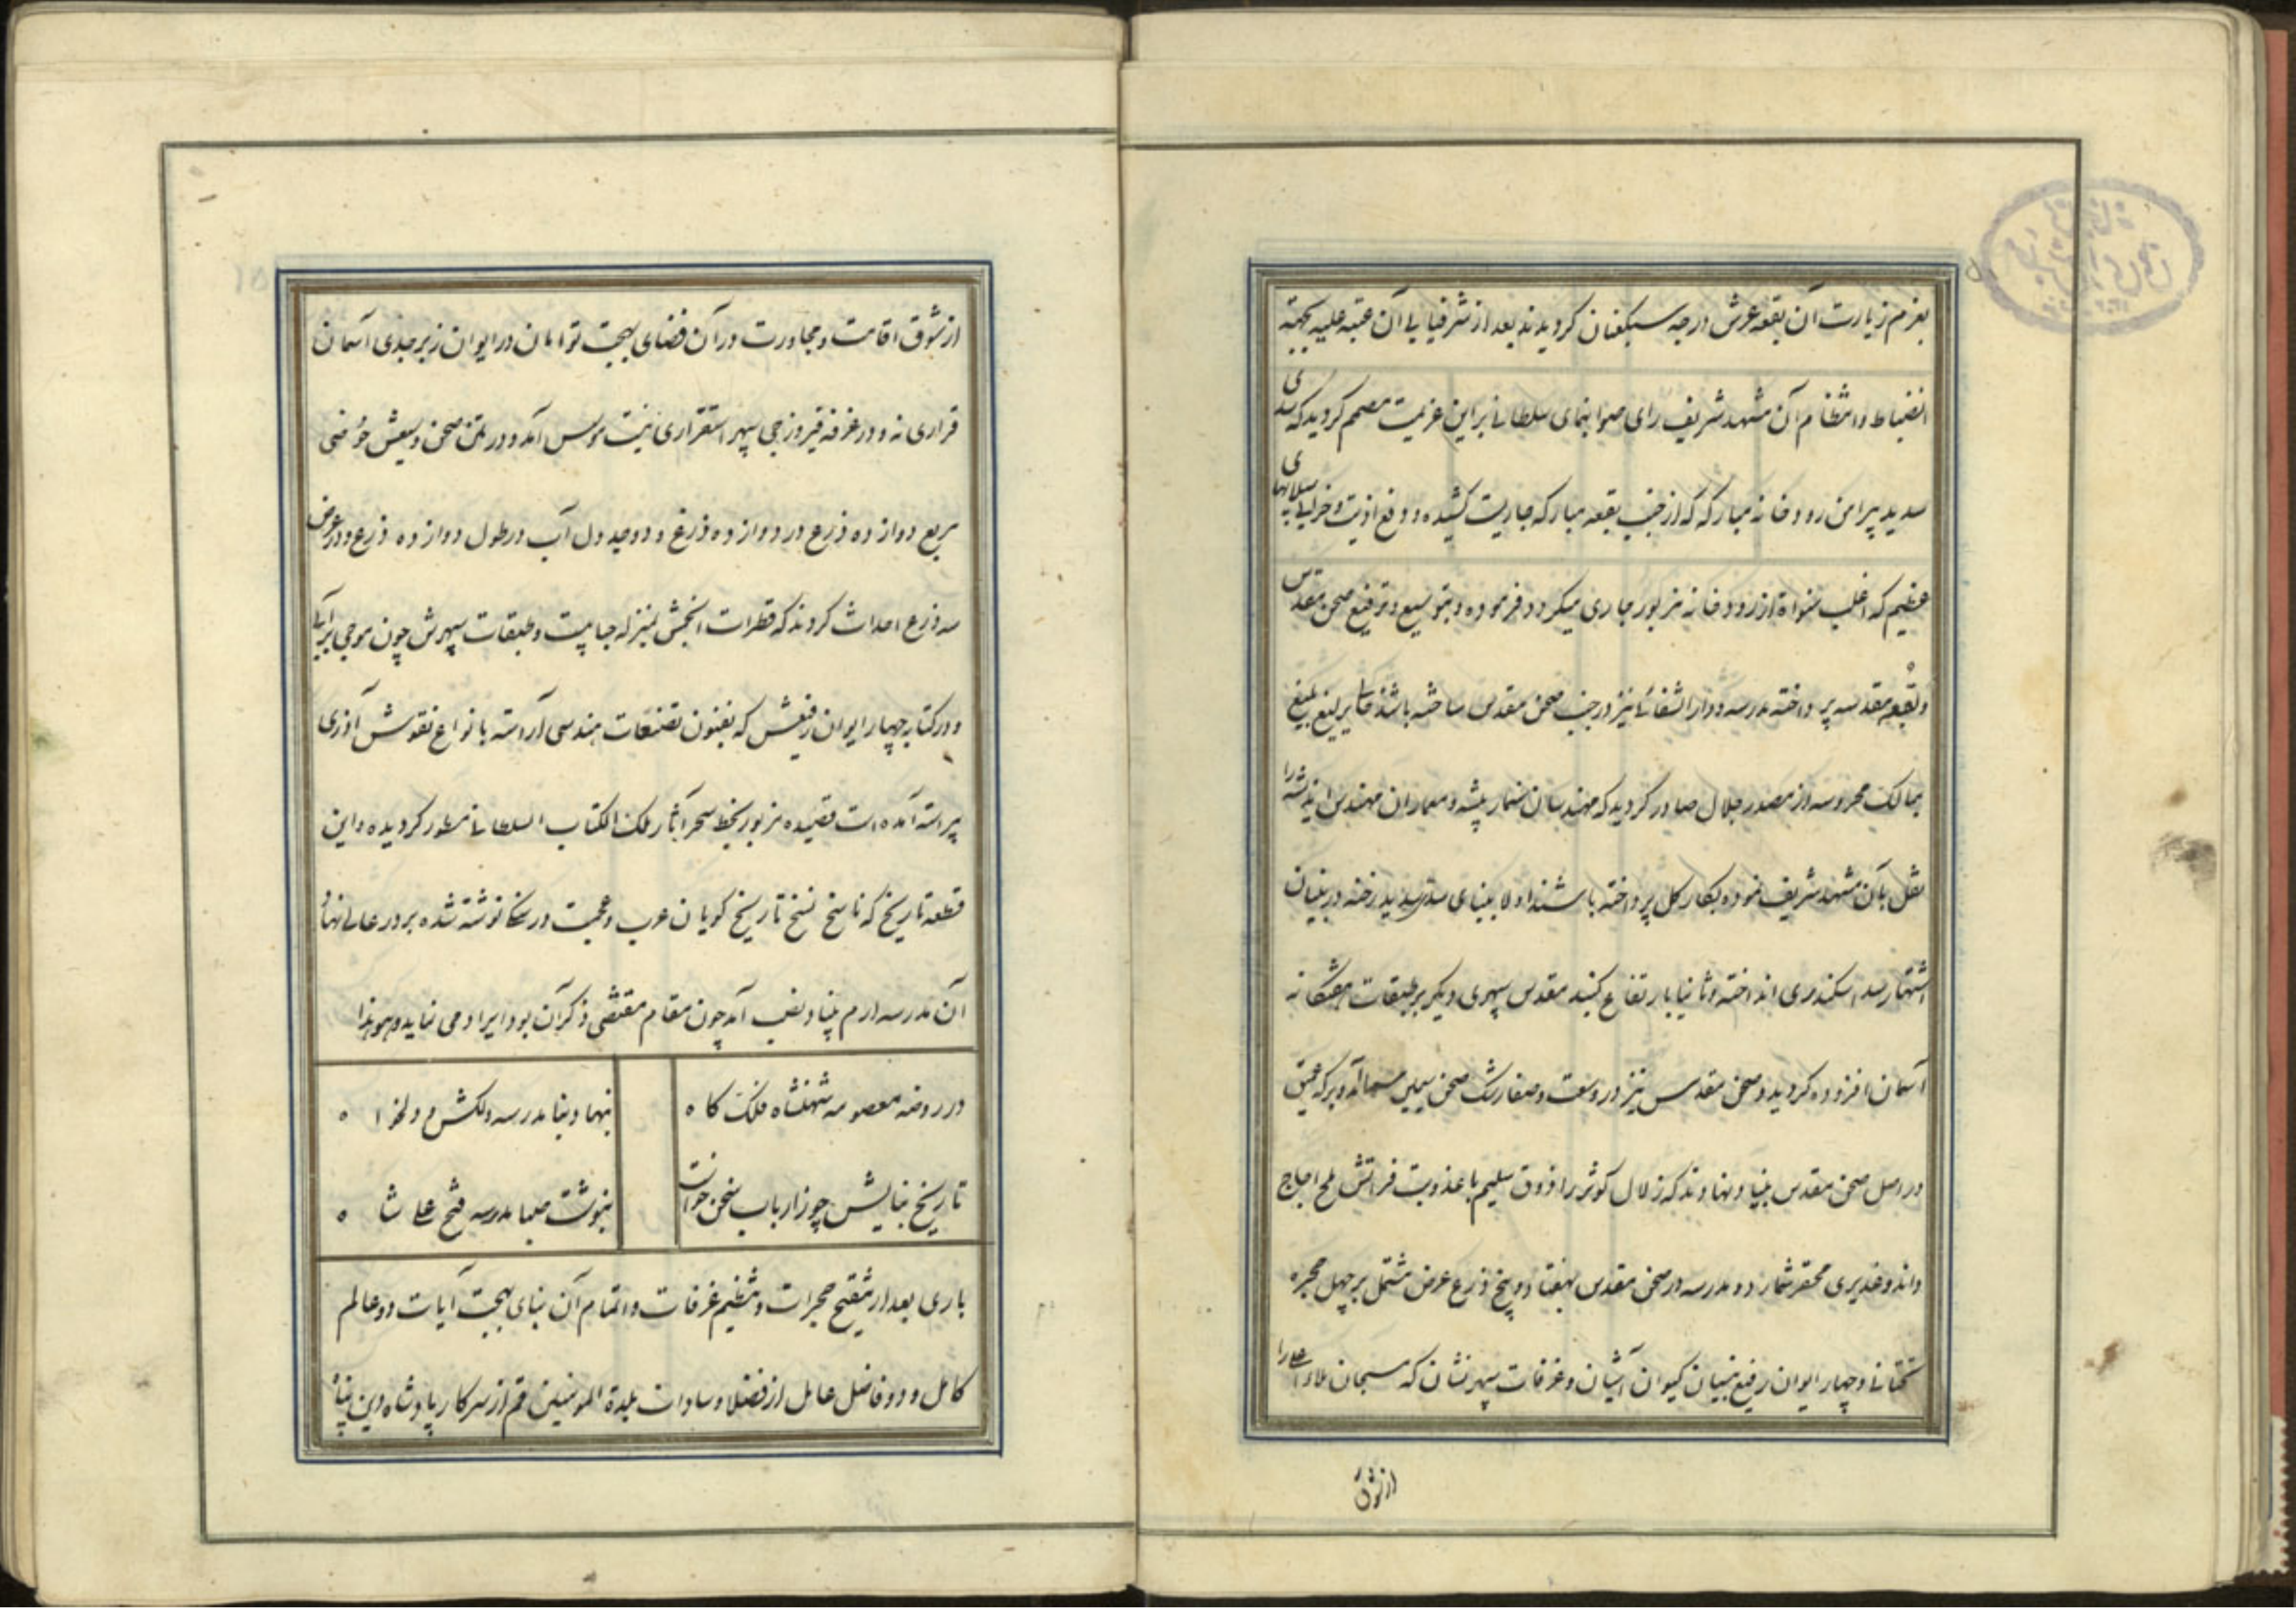 بعزم زیارت آن بقعه عرش درجه سبکعنان کردیدند بعد از شرفیابی آن عتبه علیه بجهة
انضباط و انتظام آن مشهد شریف رای صوابنمای سلطانی براین عزیمت مصمم کردید که سدی
سدید پیرامن رودخانه مبارکه که از جنب بقعه مبارکه جاریست کشیده و دفع اذیت و خرابی سیلابهای
عظیم که اغلب سنواة از رودخانه مزبور جاری میکردد فرموده و بتوسیع و ترفیع صحن مقدس
و بقعه مقدسه پرداخته مدرسه و دارالشفائی نیز در جنب صحن مقدس ساخته باشند یرلیغ بلیغ
بممالک محروسه از مصدر جلال صادر کردید که مهندسان سنمار پیشه و معماران مهندس اندیشه را
نقل بآن مشهد شریف نموده بکار کل پرداخته باشند اولا ببنای سد سدید رخنه در بنیان
اشتهار سد اسکندری انداخته و ثانیا بارتفاع کنبد مقدس سپهری دیکر بر طبقات هفتکانه
آسمان افزوده کردید و صحن مقدس نیز در وسعت و صفا رشک صحن سیمین سما آمد و برکه عمیق
در اصل صحن مقدس بنیاد نهادند که زلال کوثر را ذوق سلیم با عذوبت فراتش ملح اجاج
داند و غدیری محقر شمارد و مدرسه در صحن مقدس بهفتاد و پنج ذرع عرض مشتمل بر چهل حجره
تحتانی و چهار ایوان رفیع بنیان کیوان آشیان و غرفات سپهر نشان که سبحان ملاء اعلی را
از شوق
از شوق اقامت و مجاورت در آن فضای بهجت توامان در ایوان زبرجدی آسمان
قراری نه و در غرفه فیروزجی سپهر استقراری نیست موسس آمد و در متن صحن وسیعش حوضی
مربع دوازده ذرع در دوازده ذرع و دو جدول آب در طول دوازده ذرع و در عرض
سه ذرع احداث کردند که قطرات انجمش بمنزله حبابیست و طبقات سپهرش چون موجی بر آبی
و در کتابه چهار ایوان رفیعش که بفنون تصنعات هندسی آراسته بانواع نقوش آذری
پیراسته آمده است قصیده مزبور بخط سحر آثار ملک الکتاب السلطانی مسطور کردیده و این
قطعه تاریخ که ناسخ نسخ تاریخ کویان عرب و عجمست در سنکا نوشته شده بر در عالی نهاد
آن مدرسه ارم بنیاد نصب آمد چون مقام مقتضی ذکر آن بود ایراد می نماید و هو هذا
در روضه معصومه شهنشاه فلک کاه	بنهاد بنا مدرسه دلکش و دلخواه
تاریخ بنایش چو ز ارباب سخن خواست	بنوشت صبا مدرسه فتح علی شاه
باری بعد از تنقیح حجرات و تنظیم غرفات و اتمام آن بنای بهجت آیات دو عالم
کامل و دو فاضل عامل از فضلا و سادات بلدة المومنین قم از سرکار پادشاه دین پناه